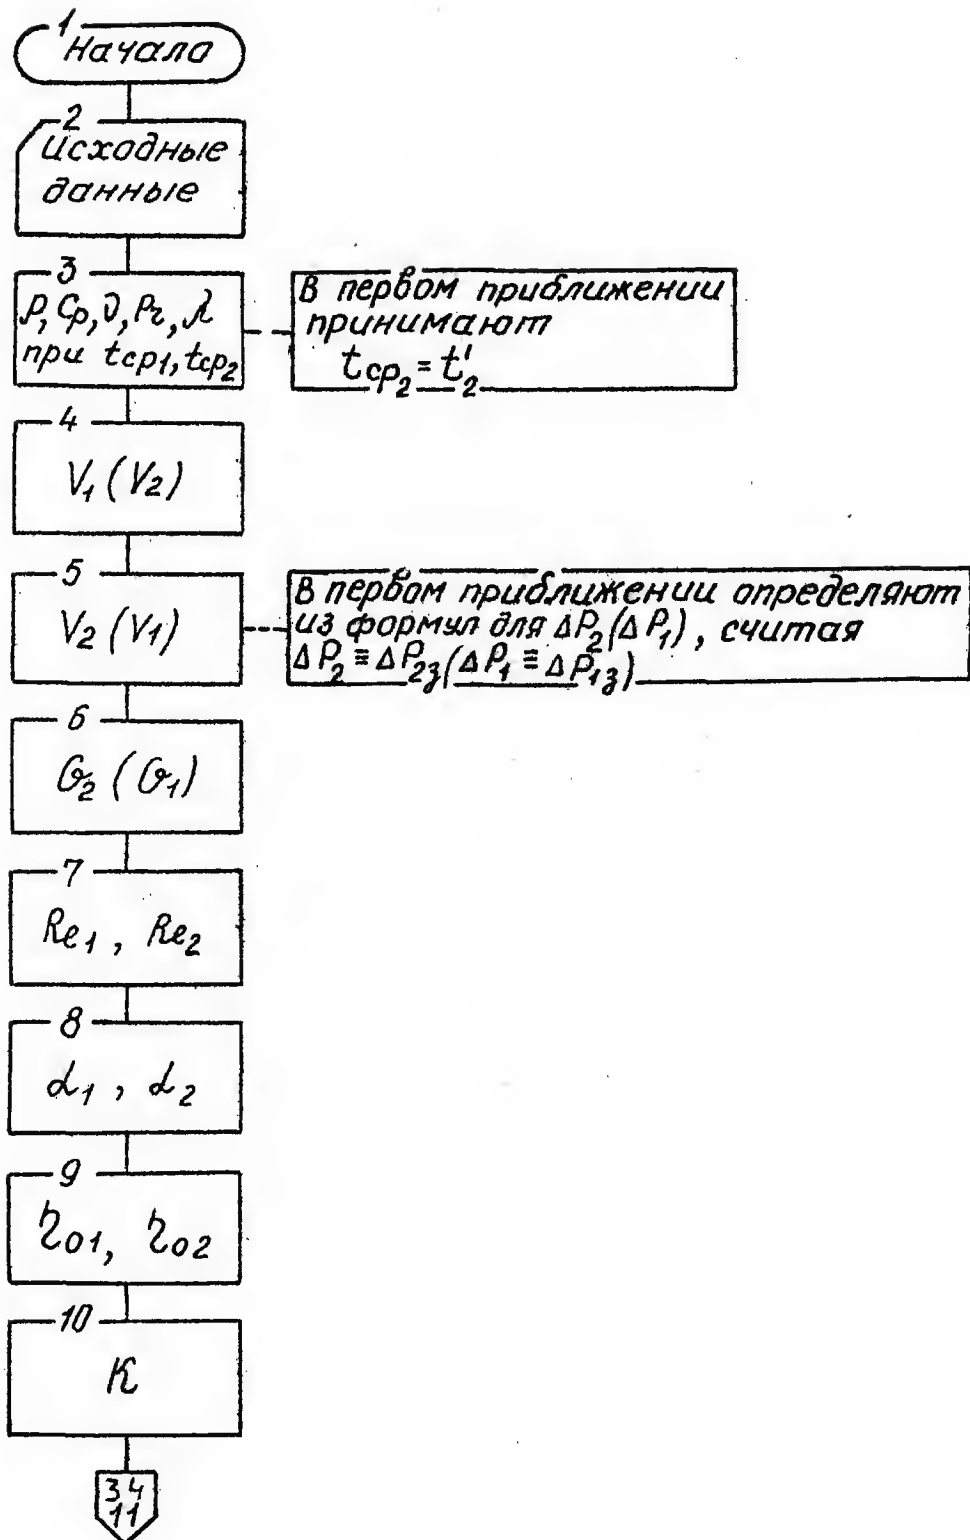 1
Начало
2
Исходные
данные
3
ρ, Cp, ν, Pr, λ
при tcp1, tcp2
В первом приближении
принимают
tcp2 = t'2
4
V1 (V2)
5
V2 (V1)
В первом приближении определяют
из формул для ΔP2(ΔP1), считая
ΔP2 ≡ ΔP2з(ΔP1 ≡ ΔP1з)
6
G2 (G1)
7
Re1, Re2
8
α1, α2
9
η01, η02
10
K
34
11